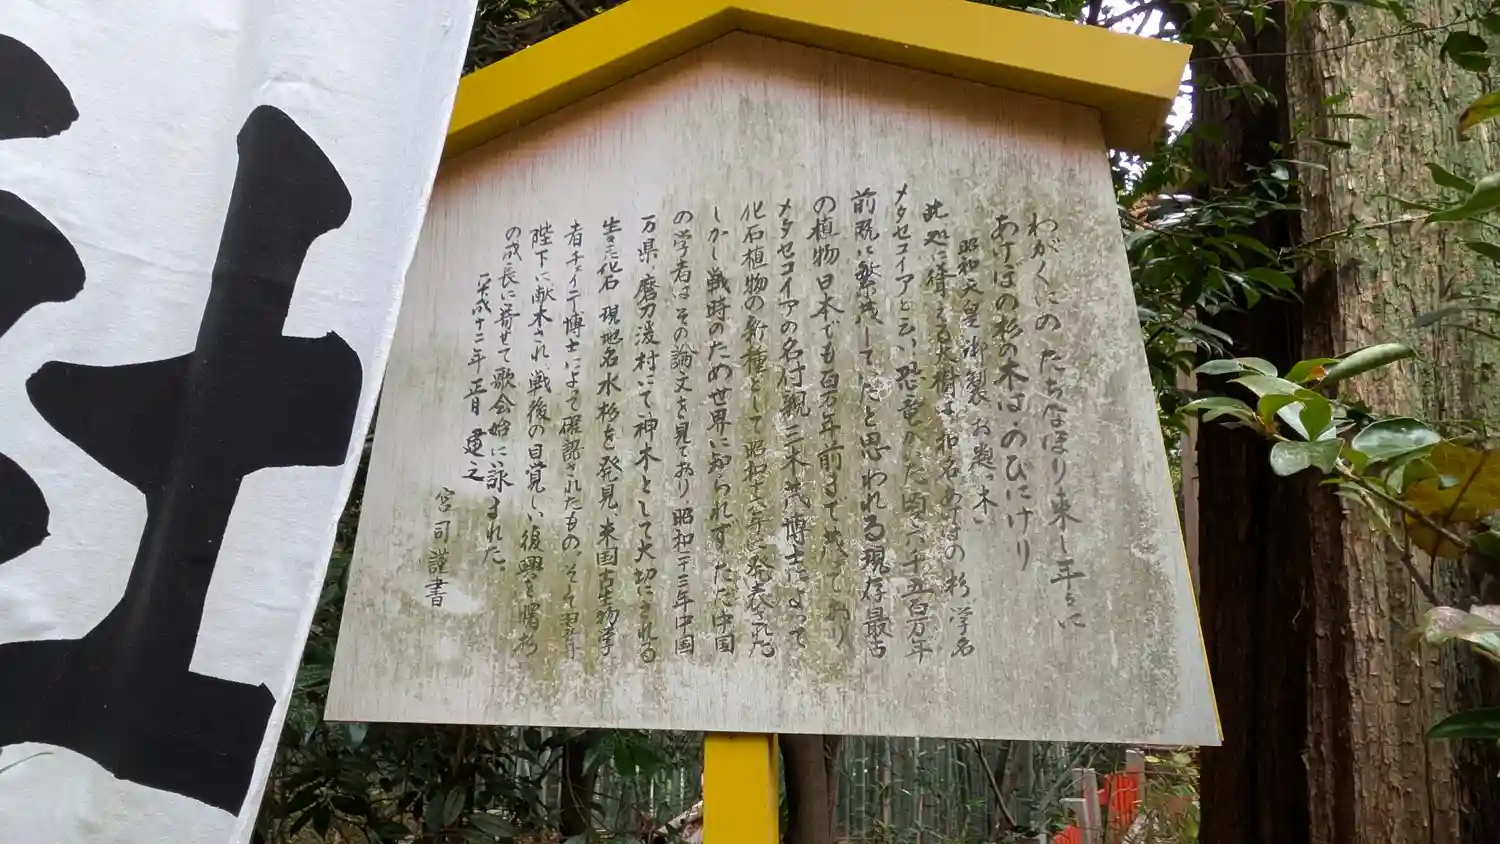 わがくにの たちなほり来し年々に
あけぼの杉の木は のびにけり
昭和天皇御製 お題“木”
此処に聳える大樹は和名あけぼの杉 学名
メタセコイアと云い、恐竜がいた頃（六千五百万年
前既に繁茂してたと思われる現存最古
の植物 日本でも百万年前まで茂っており
メタセコイアの名付親 三木茂博士によって
化石植物の新種として昭和十六年に発表された
しかし戦時のため世界に知られず、ただ中国
の学者はその論文を見ており 昭和二十三年中国
万県 磨刀渓村にて神木として大切にされる
生きた化石 現地名水杉を発見、米国古生物学
者チェイニー博士によって確認されたもの。そして
陛下に献木され、戦後の目覚しい復興を曙杉
の成長に寄せて歌会始に詠まれた。
平成十二年 正月 建之
宮司謹書
社